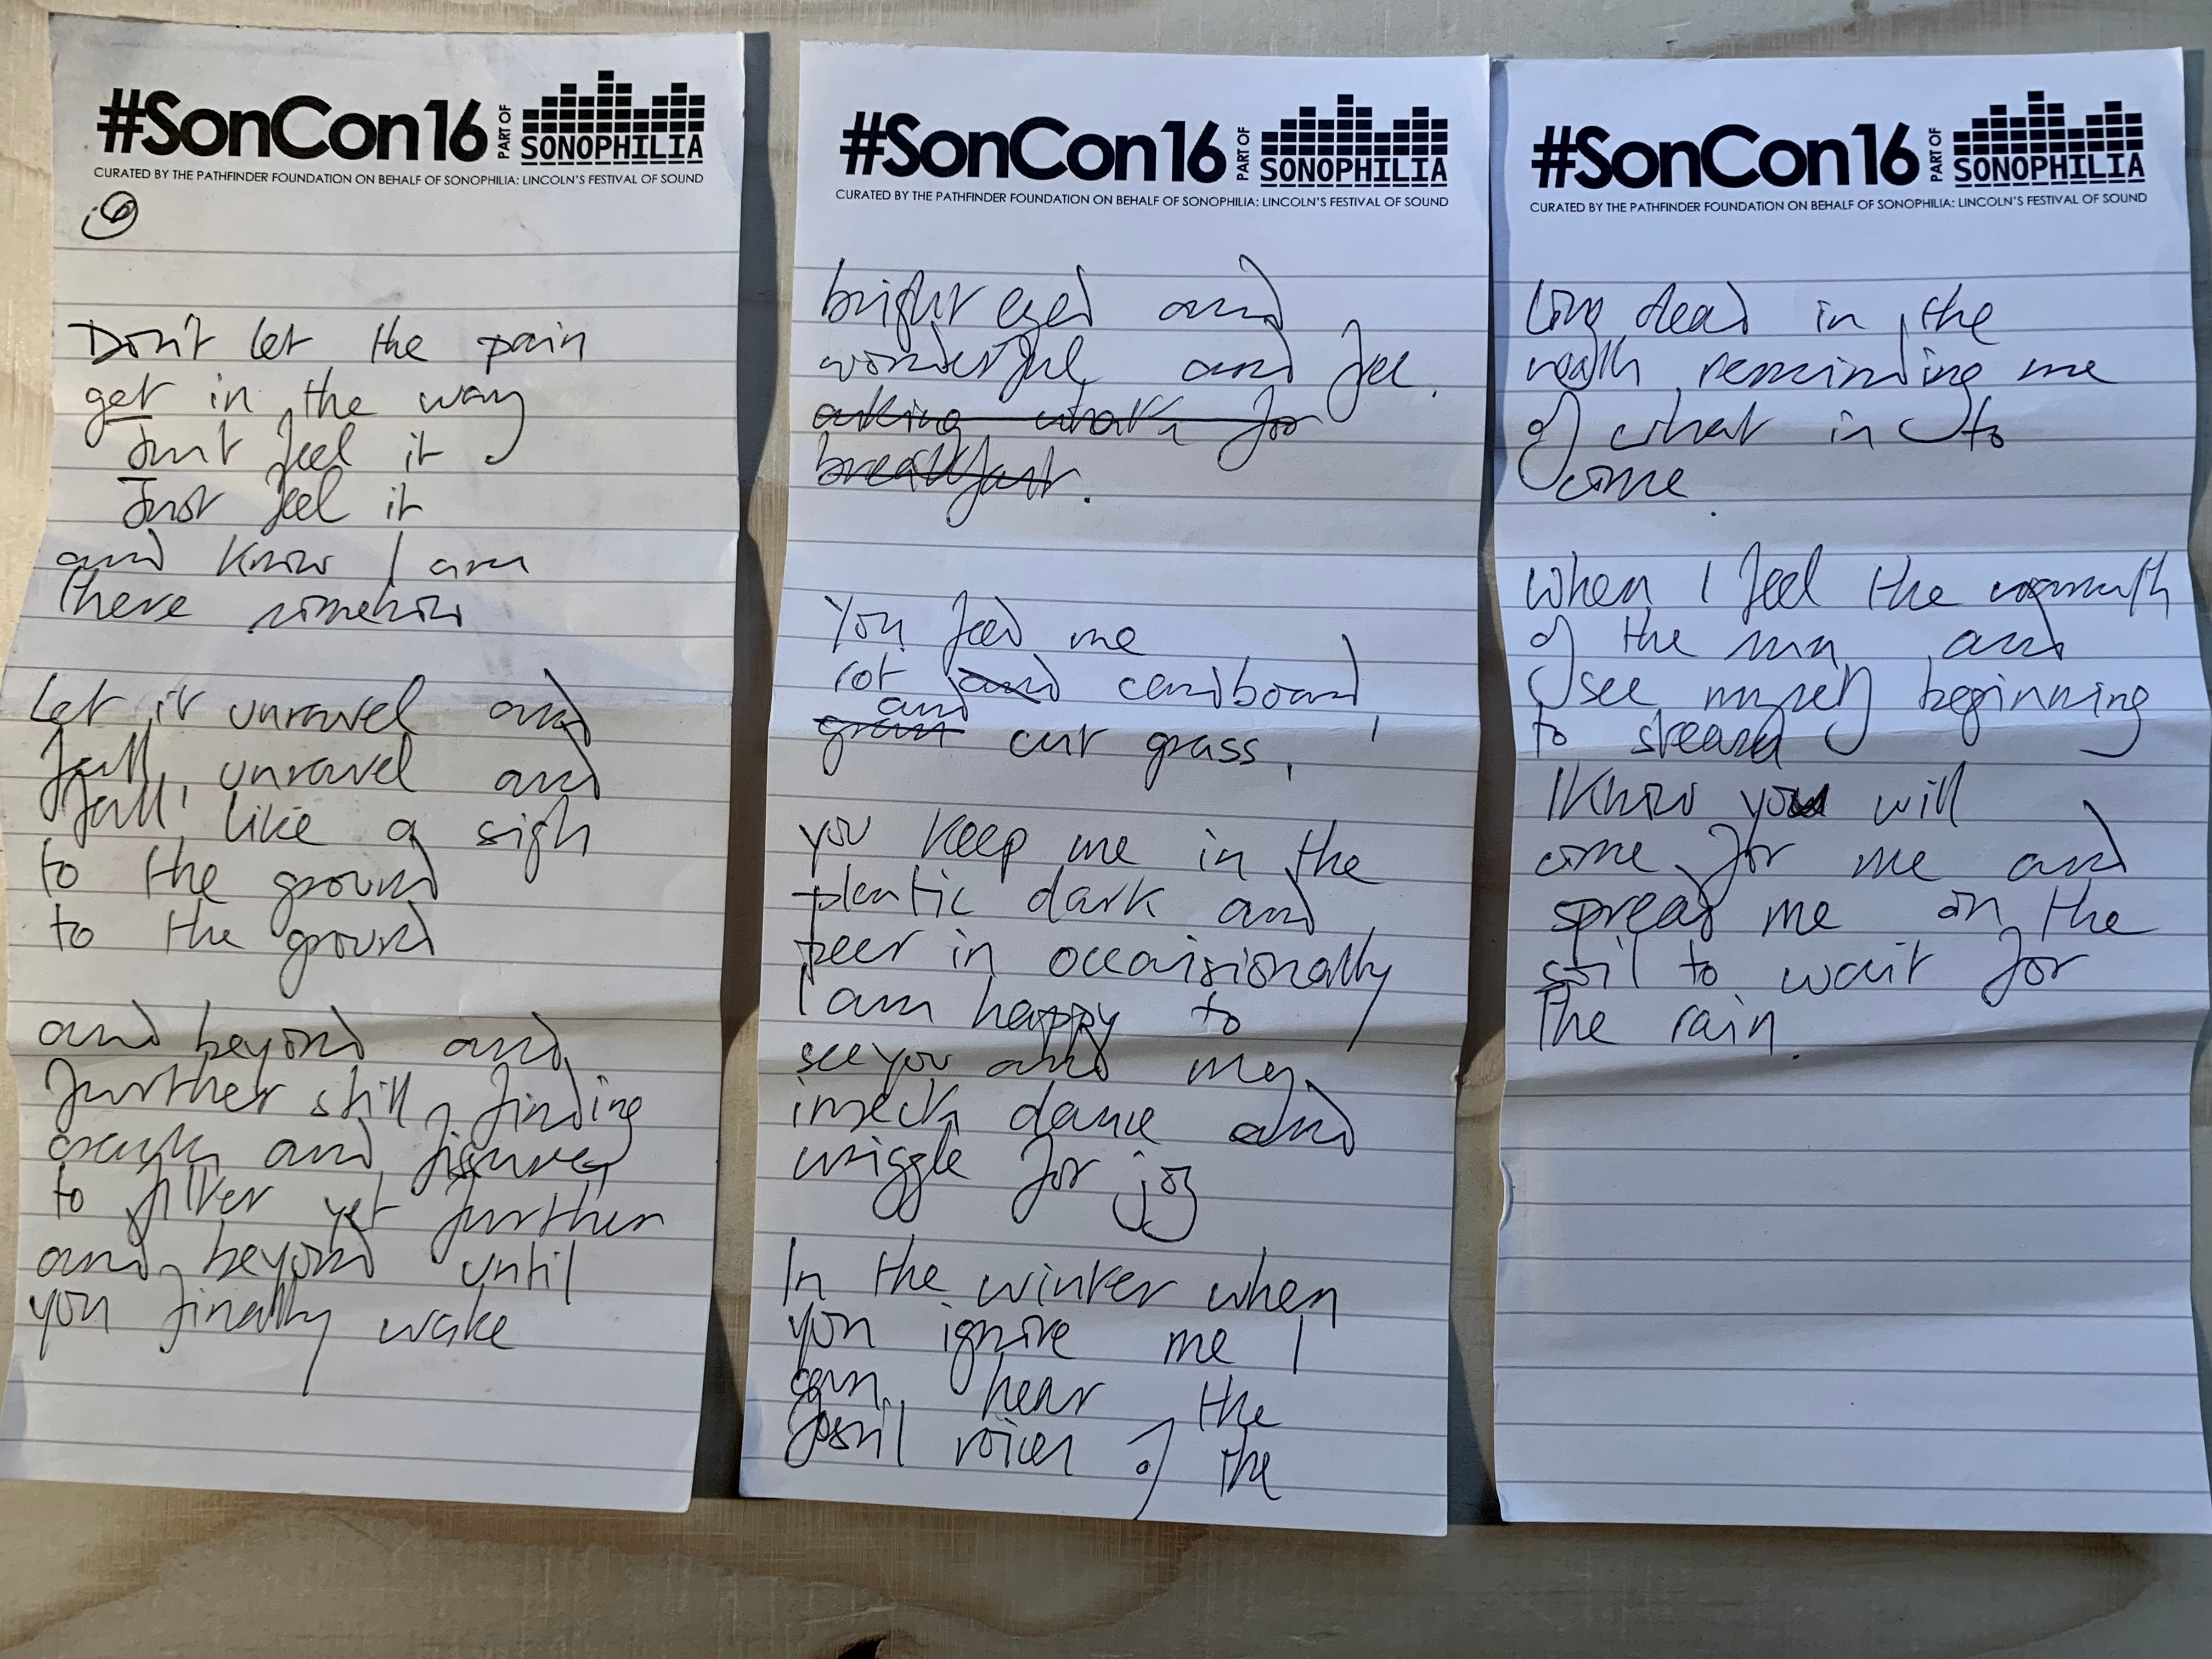 #SonCon16 PART OF SONOPHILIA
CURATED BY THE PATHFINDER FOUNDATION ON BEHALF OF SONOPHILIA: LINCOLN'S FESTIVAL OF SOUND
Don't let the pain
get in the way
Just feel it
Just feel it
and know I am
there somehow
Let it unravel and
fall, unravel and
fall, like a sigh
to the ground
to the ground
and beyond and
further still, finding
cracks and fissures
to filter yet further
and beyond until
you finally wake
#SonCon16 PART OF SONOPHILIA
CURATED BY THE PATHFINDER FOUNDATION ON BEHALF OF SONOPHILIA: LINCOLN'S FESTIVAL OF SOUND
bright eyed and
wonderful and free.
asking what's for
breakfast.
You feed me
rot and cardboard,
and
grass cut grass,
you keep me in the
plastic dark and
peer in occaisionally
I am happy to
see you and my
insects dance and
wriggle for joy
In the winter when
you ignore me I
can hear the
fossil voices of the
#SonCon16 PART OF SONOPHILIA
CURATED BY THE PATHFINDER FOUNDATION ON BEHALF OF SONOPHILIA: LINCOLN'S FESTIVAL OF SOUND
long dead in the
reminding me
of what is to
come.
When I feel the warmth
of the sun and
see myself beginning
to steam
I know you will
come for me and
spread me on the
soil to wait for
the rain.